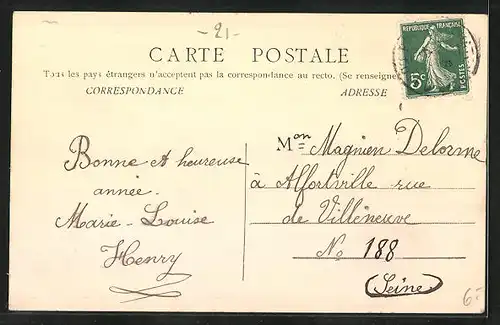 -21-
CARTE POSTALE
Tous les pays étrangers n'acceptent pas la correspondance au recto. (Se renseigner
CORRESPONDANCE
ADRESSE
REPUBLIQUE FRANÇAISE
5c
POSTES
Bonne et heureuse
année.
Marie-Louise
Henry
Mon Magnien Delorme
à Alfortville rue
de Villéneuve
No 188
(Seine)
6-